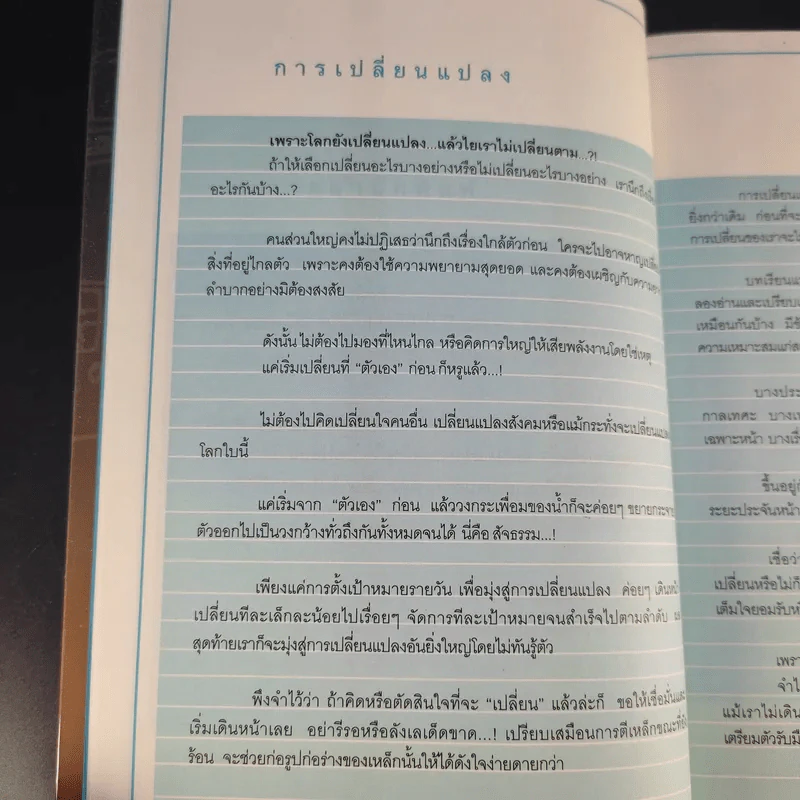 การเปลี่ยนแปลง
เพราะโลกยังเปลี่ยนแปลง...แล้วไยเราไม่เปลี่ยนตาม...?!
ถ้าให้เลือกเปลี่ยนอะไรบางอย่างหรือไม่เปลี่ยนอะไรบางอย่าง เรานึกถึง
อะไรกันบ้าง...?
คนส่วนใหญ่คงไม่ปฏิเสธว่านึกถึงเรื่องใกล้ตัวก่อน ใครจะไปอาจหาญ
สิ่งที่อยู่ไกลตัว เพราะคงต้องใช้ความพยายามสุดยอด และคงต้องเผชิญกับ
ลำบากอย่างมิต้องสงสัย
ดังนั้น ไม่ต้องไปมองที่ไหนไกล หรือคิดการใหญ่ให้เสียพลังงานโดยใช่เหตุ
แค่เริ่มเปลี่ยนที่ “ตัวเอง” ก่อน ก็หรูแล้ว...!
ไม่ต้องไปคิดเปลี่ยนใจคนอื่น เปลี่ยนแปลงสังคมหรือแม้กระทั่งจะ
โลกใบนี้
แค่เริ่มจาก “ตัวเอง” ก่อน แล้ววงกระเพื่อมของน้ำก็จะค่อยๆ ขยาย
ตัวออกไปเป็นวงกว้างทั่วถึงกันทั้งหมดจนได้ นี่คือ สัจธรรม...!
เพียงแค่การตั้งเป้าหมายรายวัน เพื่อมุ่งสู่การเปลี่ยนแปลง ค่อยๆ
เปลี่ยนทีละเล็กละน้อยไปเรื่อยๆ จัดการทีละเป้าหมายจนสำเร็จไปตามลำดับ
สุดท้ายเราก็จะมุ่งสู่การเปลี่ยนแปลงอันยิ่งใหญ่โดยไม่ทันรู้ตัว
พึงจำไว้ว่า ถ้าคิดหรือตัดสินใจที่จะ “เปลี่ยน” แล้วล่ะก็ ขอให้เชื่อมั่นและ
เริ่มเดินหน้าเลย อย่ารีรอหรือลังเลเด็ดขาด...! เปรียบเสมือนการตีเหล็กขณะที่
ร้อน จะช่วยก่อรูปก่อร่างของเหล็กนั้นให้ได้ดังใจง่ายดายกว่า
ยิ่งกว่าเดิม ก่อนที่จะ
การเปลี่ยนของเราจะ
ลองอ่านและเปรียบ
เหมือนกันบ้าง
ความเหมาะสมแก่
กาลเทศะ
เฉพาะหน้า
ขึ้นอยู่
ระยะประจันหน้า
เปลี่ยนหรือไม่
เต็มใจยอมรับ
แม้เราไม่เดิน
เตรียมตัวรับมือ